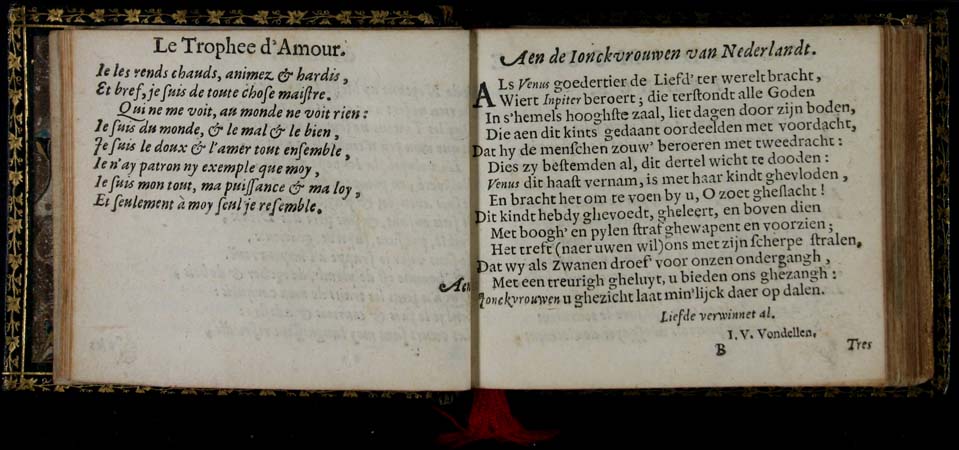 Le Trophee d'Amour.
Ie les rends chauds, animez & hardis,
Et bref, je ſuis de toute choſe maiſtre.
Qui ne me voit, au monde ne voit rien:
Ie ſuis du monde, & le mal & le bien,
Je ſuis le doux & l'amèr tout enſemble,
Ie n'ay patron ny exemple que moy,
Ie ſuis mon tout, ma puiſſance & ma loy,
Et ſeulement à moy ſeul je reſemble.
Aen
Aen de Ionckvrouwen van Nederlandt.
ALs Venus goedertier de Liefd' ter werelt bracht,
Wiert Iupiter beroert; die terſtondt alle Goden
In s'hemels hooghſte zaal, liet dagen door zijn boden,
Die aen dit kints gedaant oordeelden met voordacht,
Dat hy de menſchen zouw' beroeren met tweedracht:
Dies zy beſtemden al, dit dertel wicht te dooden:
Venus dit haaſt vernam, is met haar kindt ghevloden,
En bracht het om te voen by u, O zoet gheſlacht!
Dit kindt hebdy ghevoedt, gheleert, en boven dien
Metboogh' en pylen ſtraf ghewapent en voorzien;
Het treft (naer uwen wil) ons met zijn ſcherpe ſtralen,
Dat wy als Zwanen droef voor onzen ondergangh,
Met een treurigh gheluyt, u bieden ons ghezangh:
Jonckvrouwen u ghezicht laat min'lijck daer op dalen.
Liefde verwinnet al.
I. V. Vondellen.
B
Tres